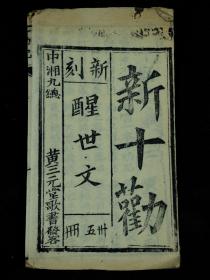 新十勸
新刻
醒世文
卅五冊
中湘九總
黃三元堂歌書發客